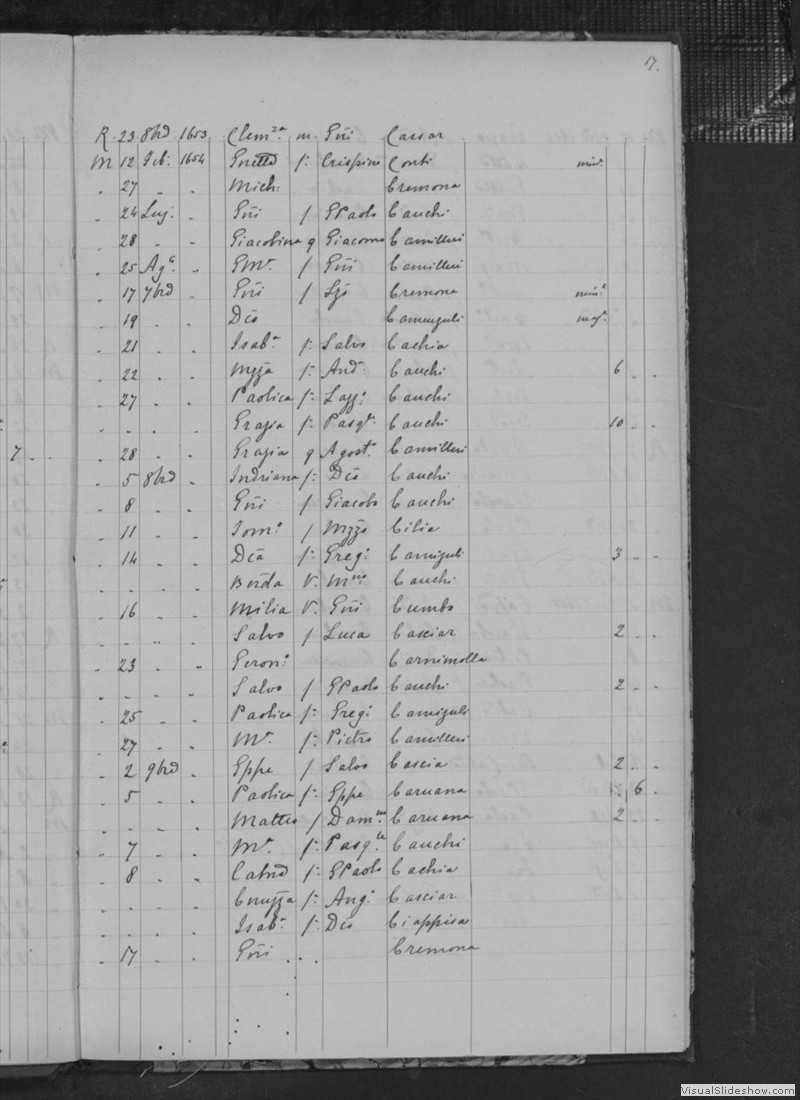 17.
R. 23 8bre 1653 Clem:za m. Gni Cassar
M 12 Feb. 1654 f: Crispino Conti min:
. 27 . . Mich: Cremona
. 24 Lug. . Gni f GPaolo Cauchi
. 28 . . Giacobina q Giacomo Camilleri
. 25 Ag:o . GM:a f Gni Camilleri
. 17 7bre . Gni f Cremona min:e
. 19 . . Dco mag:e
. 21 . . Isab:a f: Salvo Cachia
. 22 . . f: And:a Cauchi 6 . .
. 27 . . Paolica f: Lazz: Cauchi
. . . . Grazia f: Pasq:e Cauchi 10 . .
7 . . . 28 . . Grazia q Agost:o Camilleri
. 5 8bre . Indriana f: Dco Cauchi
. 8 . . Gni f Giacobo Cauchi
. 11 . . Tom:o f Cilia
. 14 . . Dca f: Greg: Camiguli 3 . .
. . . . V. Cauchi
. 16 . . Milia V. Gni Cumbo
. . . . Salvo f Luca Casciar 2 . .
. 23 . . Geron:o Carnimolla
. . . . Salvo f GPaolo Cauchi 2 . .
. 25 . . Paolica f: Greg: Camiguli
. 27 . . M:a f: Pietro Camilleri
. 2 9bre . Gppe f Salvo Cascia 2 . .
. 5 . . Paolica f: Gppe Caruana 6 .
. . . . Matteo f Caruana 2 . .
. 7 . . M:a f: Pasq:le Cauchi
. 8 . . f: GPaolo Cachia
. . . . f: Ang: Casciar
. . . . Isab:a f: Dco Ciappisa
. 17 . . Gni . . . Cremona
VisualSlideshow.com